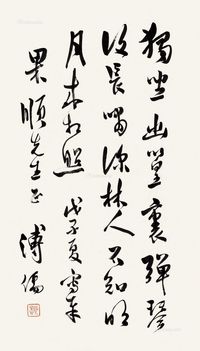 獨坐幽篁裏彈琴
復長嘯深林人不知明
月來相照 戊子夏寫奉
果順先生正 溥儒